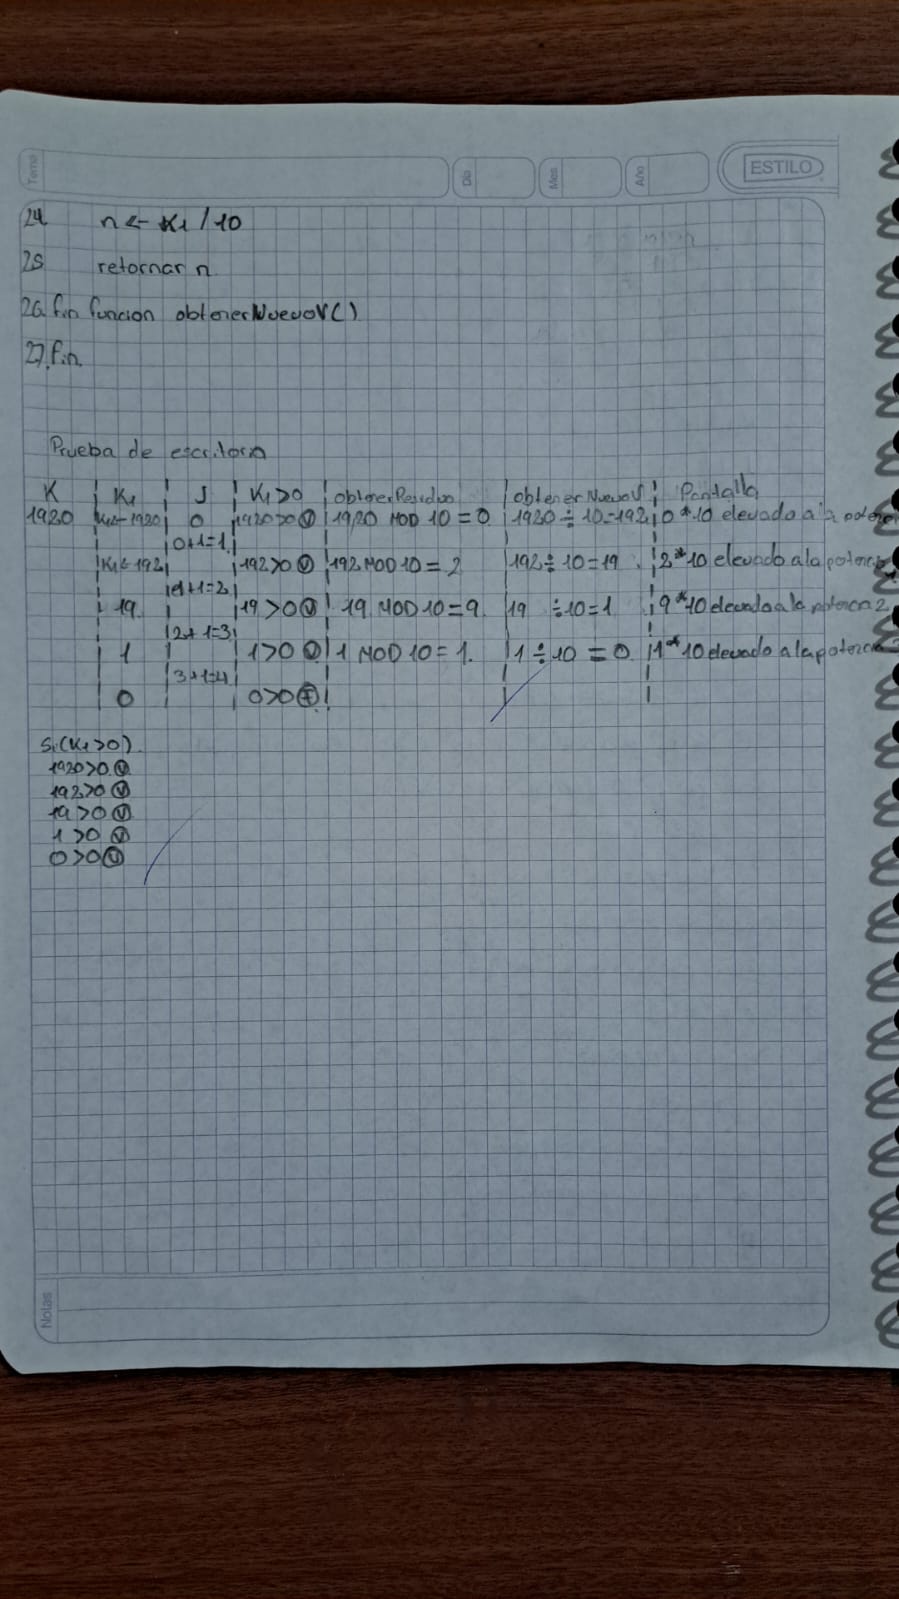 Tema
Dia
Mes
Año
ESTILO
24 n ← K1 / 10
25 retornar n
26 fin funcion obtenerNuevoV()
27 fin
Prueba de escritorio
K K1 J K1>0 obtenerResiduo obtenerNuevoV Pantalla
1920 K1←1920 0 1920>0 V 1920 MOD 10=0 1920÷10=192 0*10 elevado a la
0+1=1
K1←192 192>0 V 192 MOD 10=2 192÷10=19 2*10 elevado a la potencia
1+1=2
19 19>0 V 19 MOD 10=9 19 ÷10=1 9*10 elevado a la potencia 2
2+1=3
1 1>0 V 1 MOD 10=1. 1÷10=0 1*10 elevado a la potencia
3+1=4
0 0>0 F
Si(K1>0)
1920>0 V
192>0 V
19>0 V
1>0 V
0>0 V
Notas